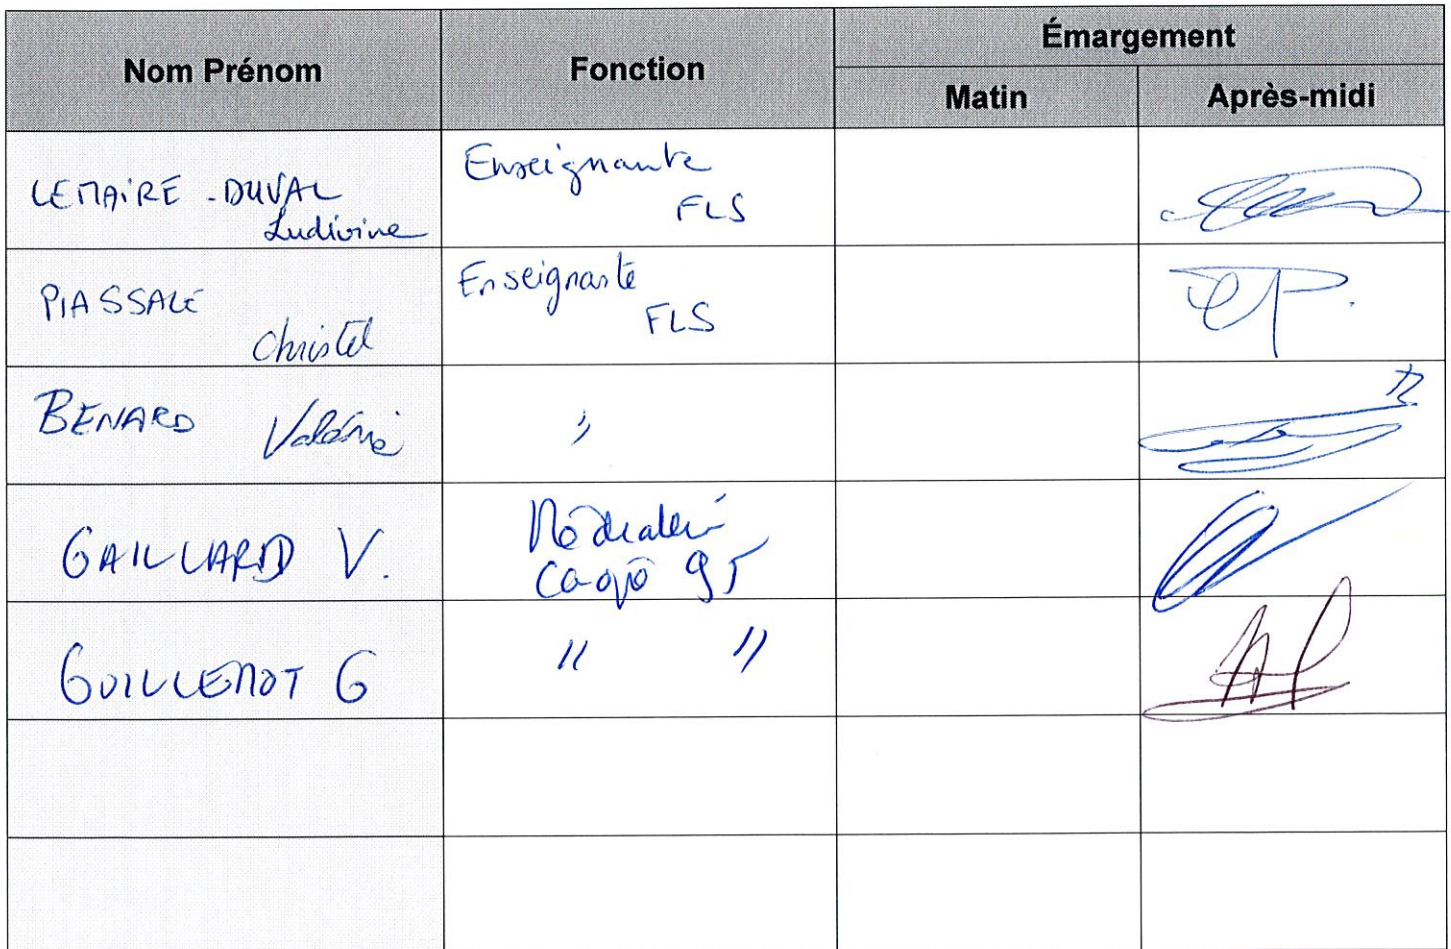 Nom Prénom Fonction Émargement
Matin Après-midi
LEMAIRE - DUVAL
Ludivine
Enseignante
FLS
PIASSALE
Christel
Enseignante
FLS
BENARD Valérie
"
GAILLARD V.
95
GUILLEMOT G
" "